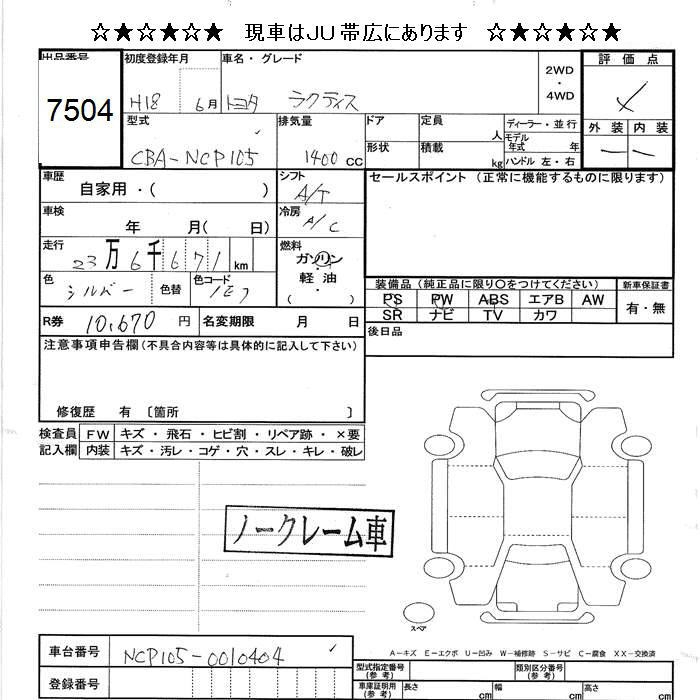 ☆★☆★☆★☆ 現車はJU帯広にあります ☆★☆★☆★☆
出品番号 初度登録年月 車名・グレード 2WD・4WD 評価点
7504 H18 6月 トヨタ ラクティス
型式 排気量 ドア 定員 人 ディーラー・並行 外装 内装
CBA-NCP105 1400 CC 形状 積載 kg モデル年式 年 ハンドル 左・右 — —
車歴 自家用・( ) シフト A/T セールスポイント (正常に機能するものに限ります)
車検 年 月( 日) 冷房 A/C
走行 23万6千671km 燃料 ガソリン・軽油・( )
色 シルバー 色替 色コード 1E7
装備品(純正品に限り〇をつけてください) 新車保証書
PS PW ABS エアB AW 有・無
SR ナビ TV カワ
R券 10,670 円 名変期限 月 日 後日品
注意事項申告欄(不具合内容等は具体的に記入して下さい)
修復歴 有 〔箇所 〕
検査員 FW キズ・飛石・ヒビ割・リペア跡・×要
記入欄 内装 キズ・汚レ・コゲ・穴・スレ・キレ・破レ
ノークレーム車
スペア
A−キズ E−エクボ U−凹み W−補修跡 S−サビ C−腐食 XX−交換済
車台番号 NCP105-0010404 型式指定番号(参考) 類別区分番号(参考)
登録番号 車庫証明用(参考) 長さ cm 幅 cm 高さ cm